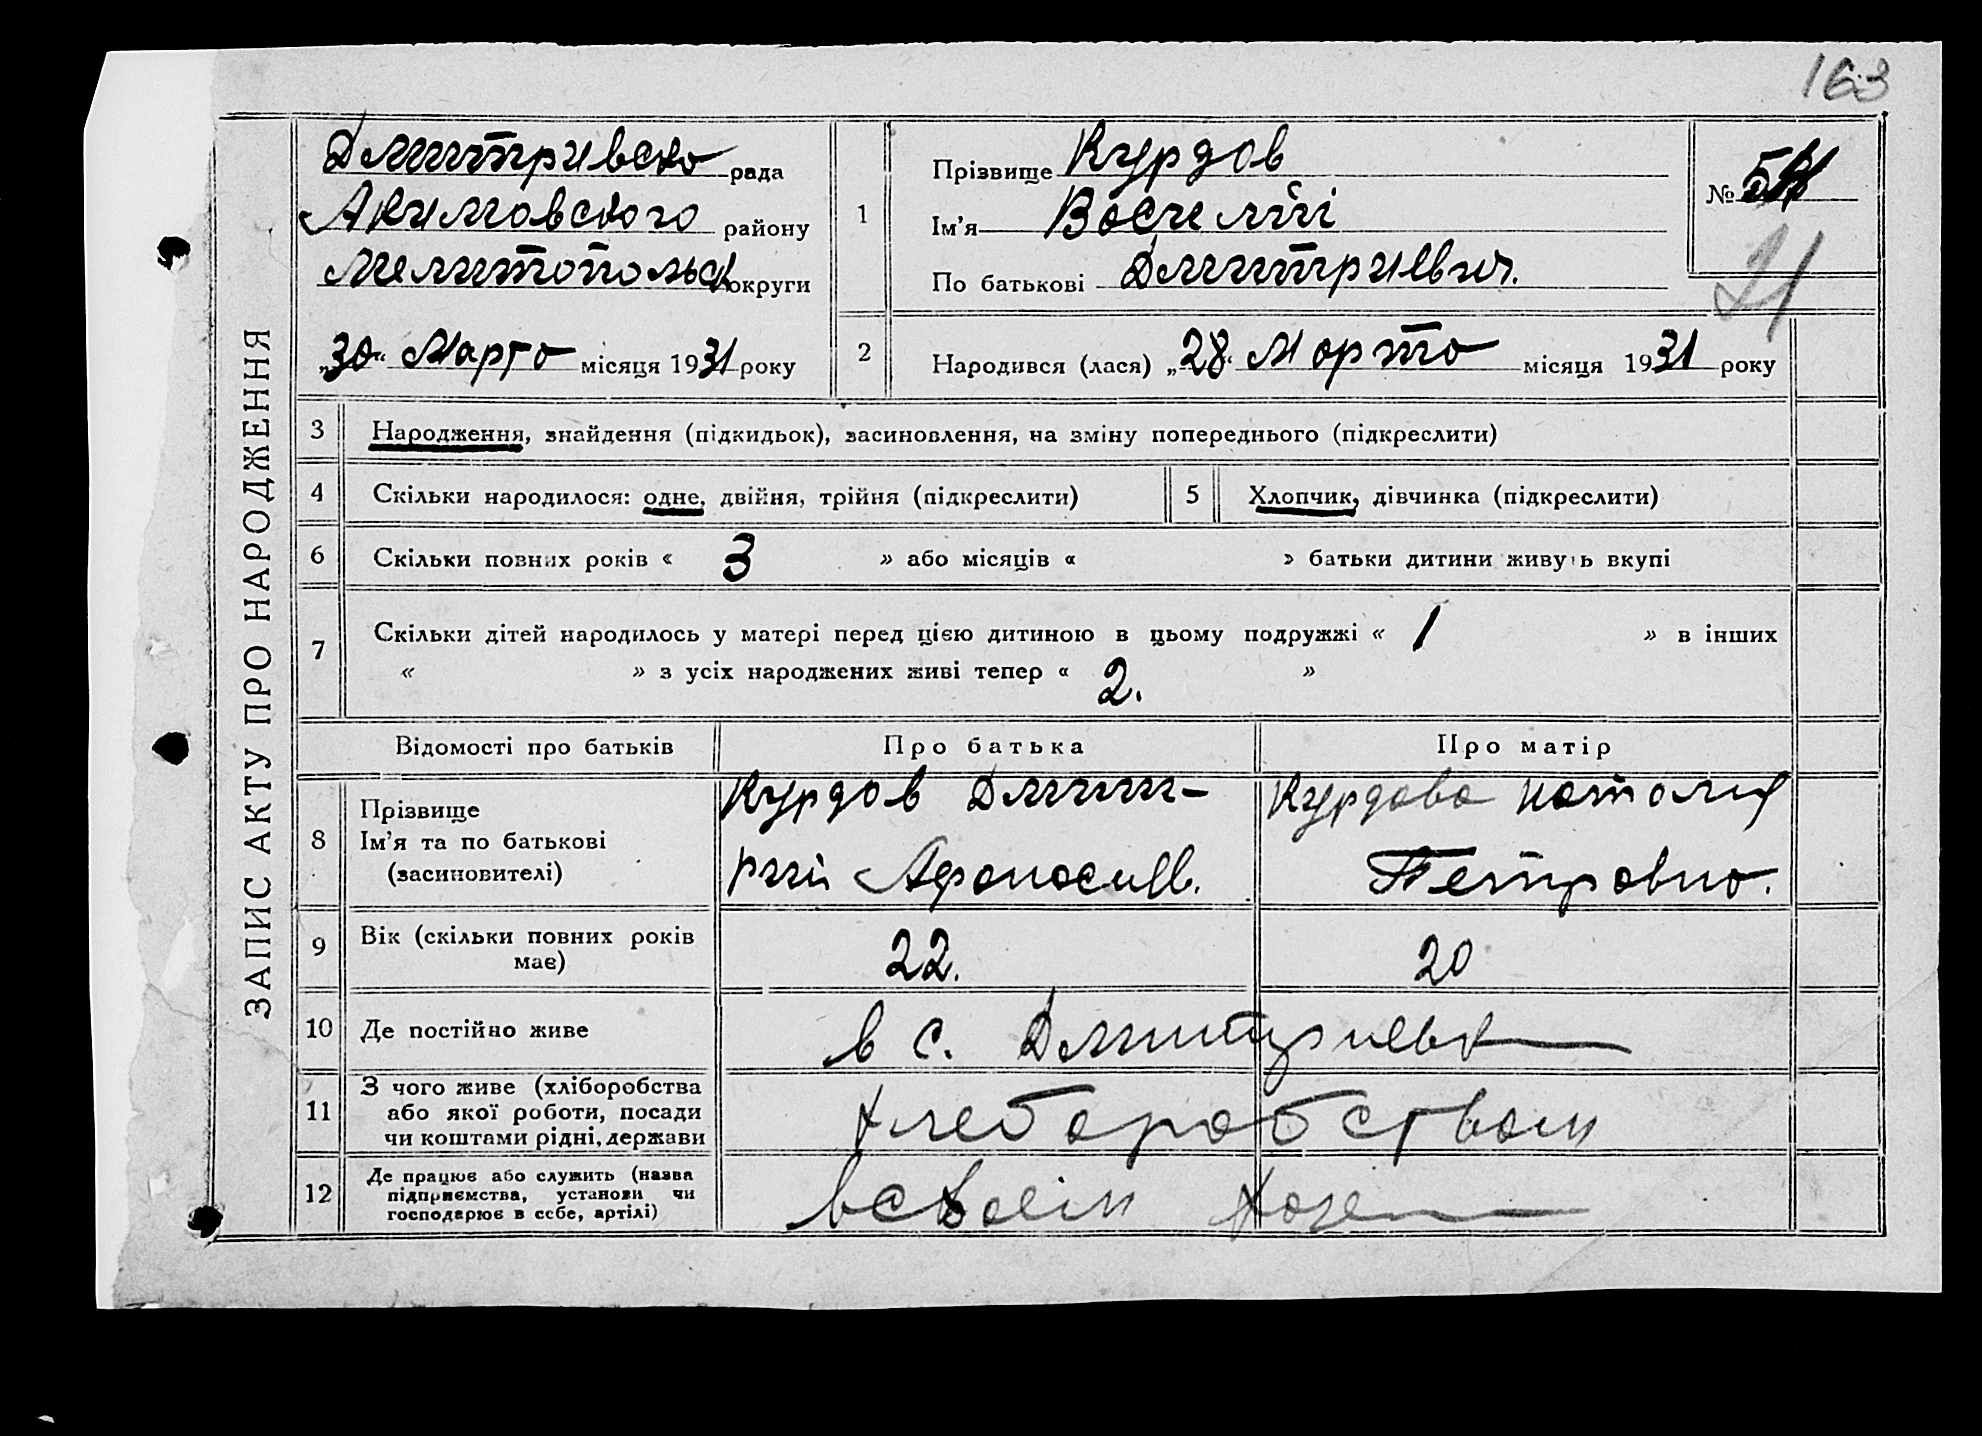 163
ЗАПИС АКТУ ПРО НАРОДЖЕННЯ
Дмитривско рада
Акимовского району
Мелитопольск округи
„30“ Марто місяця 1931 року
1
Прізвище Курдов
Ім'я Восилій
По батькові Дмитриевич.
№
21
2
Народився (лася) „28“ Морто місяця 1931 року
3 Народження, знайдення (підкидьок), засиновлення, на зміну попереднього (підкреслити)
4 Скільки народилося: одне, двійня, трійня (підкреслити)
5 Хлопчик, дівчинка (підкреслити)
6 Скільки повних років « 3 » або місяців « » батьки дитини живуть вкупі
7 Скільки дітей народилось у матері перед цією дитиною в цьому подружжі « 1 » в інших
« » з усіх народжених живі тепер « 2. »
Відомості про батьків Про батька Про матір
8 Прізвище
Ім'я та по батькові
(засиновителі)
Курдов Дмит-
рий Афоносиев.
Курдова Натолия
Петровно.
9 Вік (скільки повних років
має)
22.
20
10 Де постійно живе
в с. Дмитриевк
11 З чого живе (хліборобства
або якої роботи, посади
чи коштами рідні, держави
хлеборобством
12 Де працює або служить (назва
підприємства, установи чи
господарює в себе, артілі)
в своєм хозе